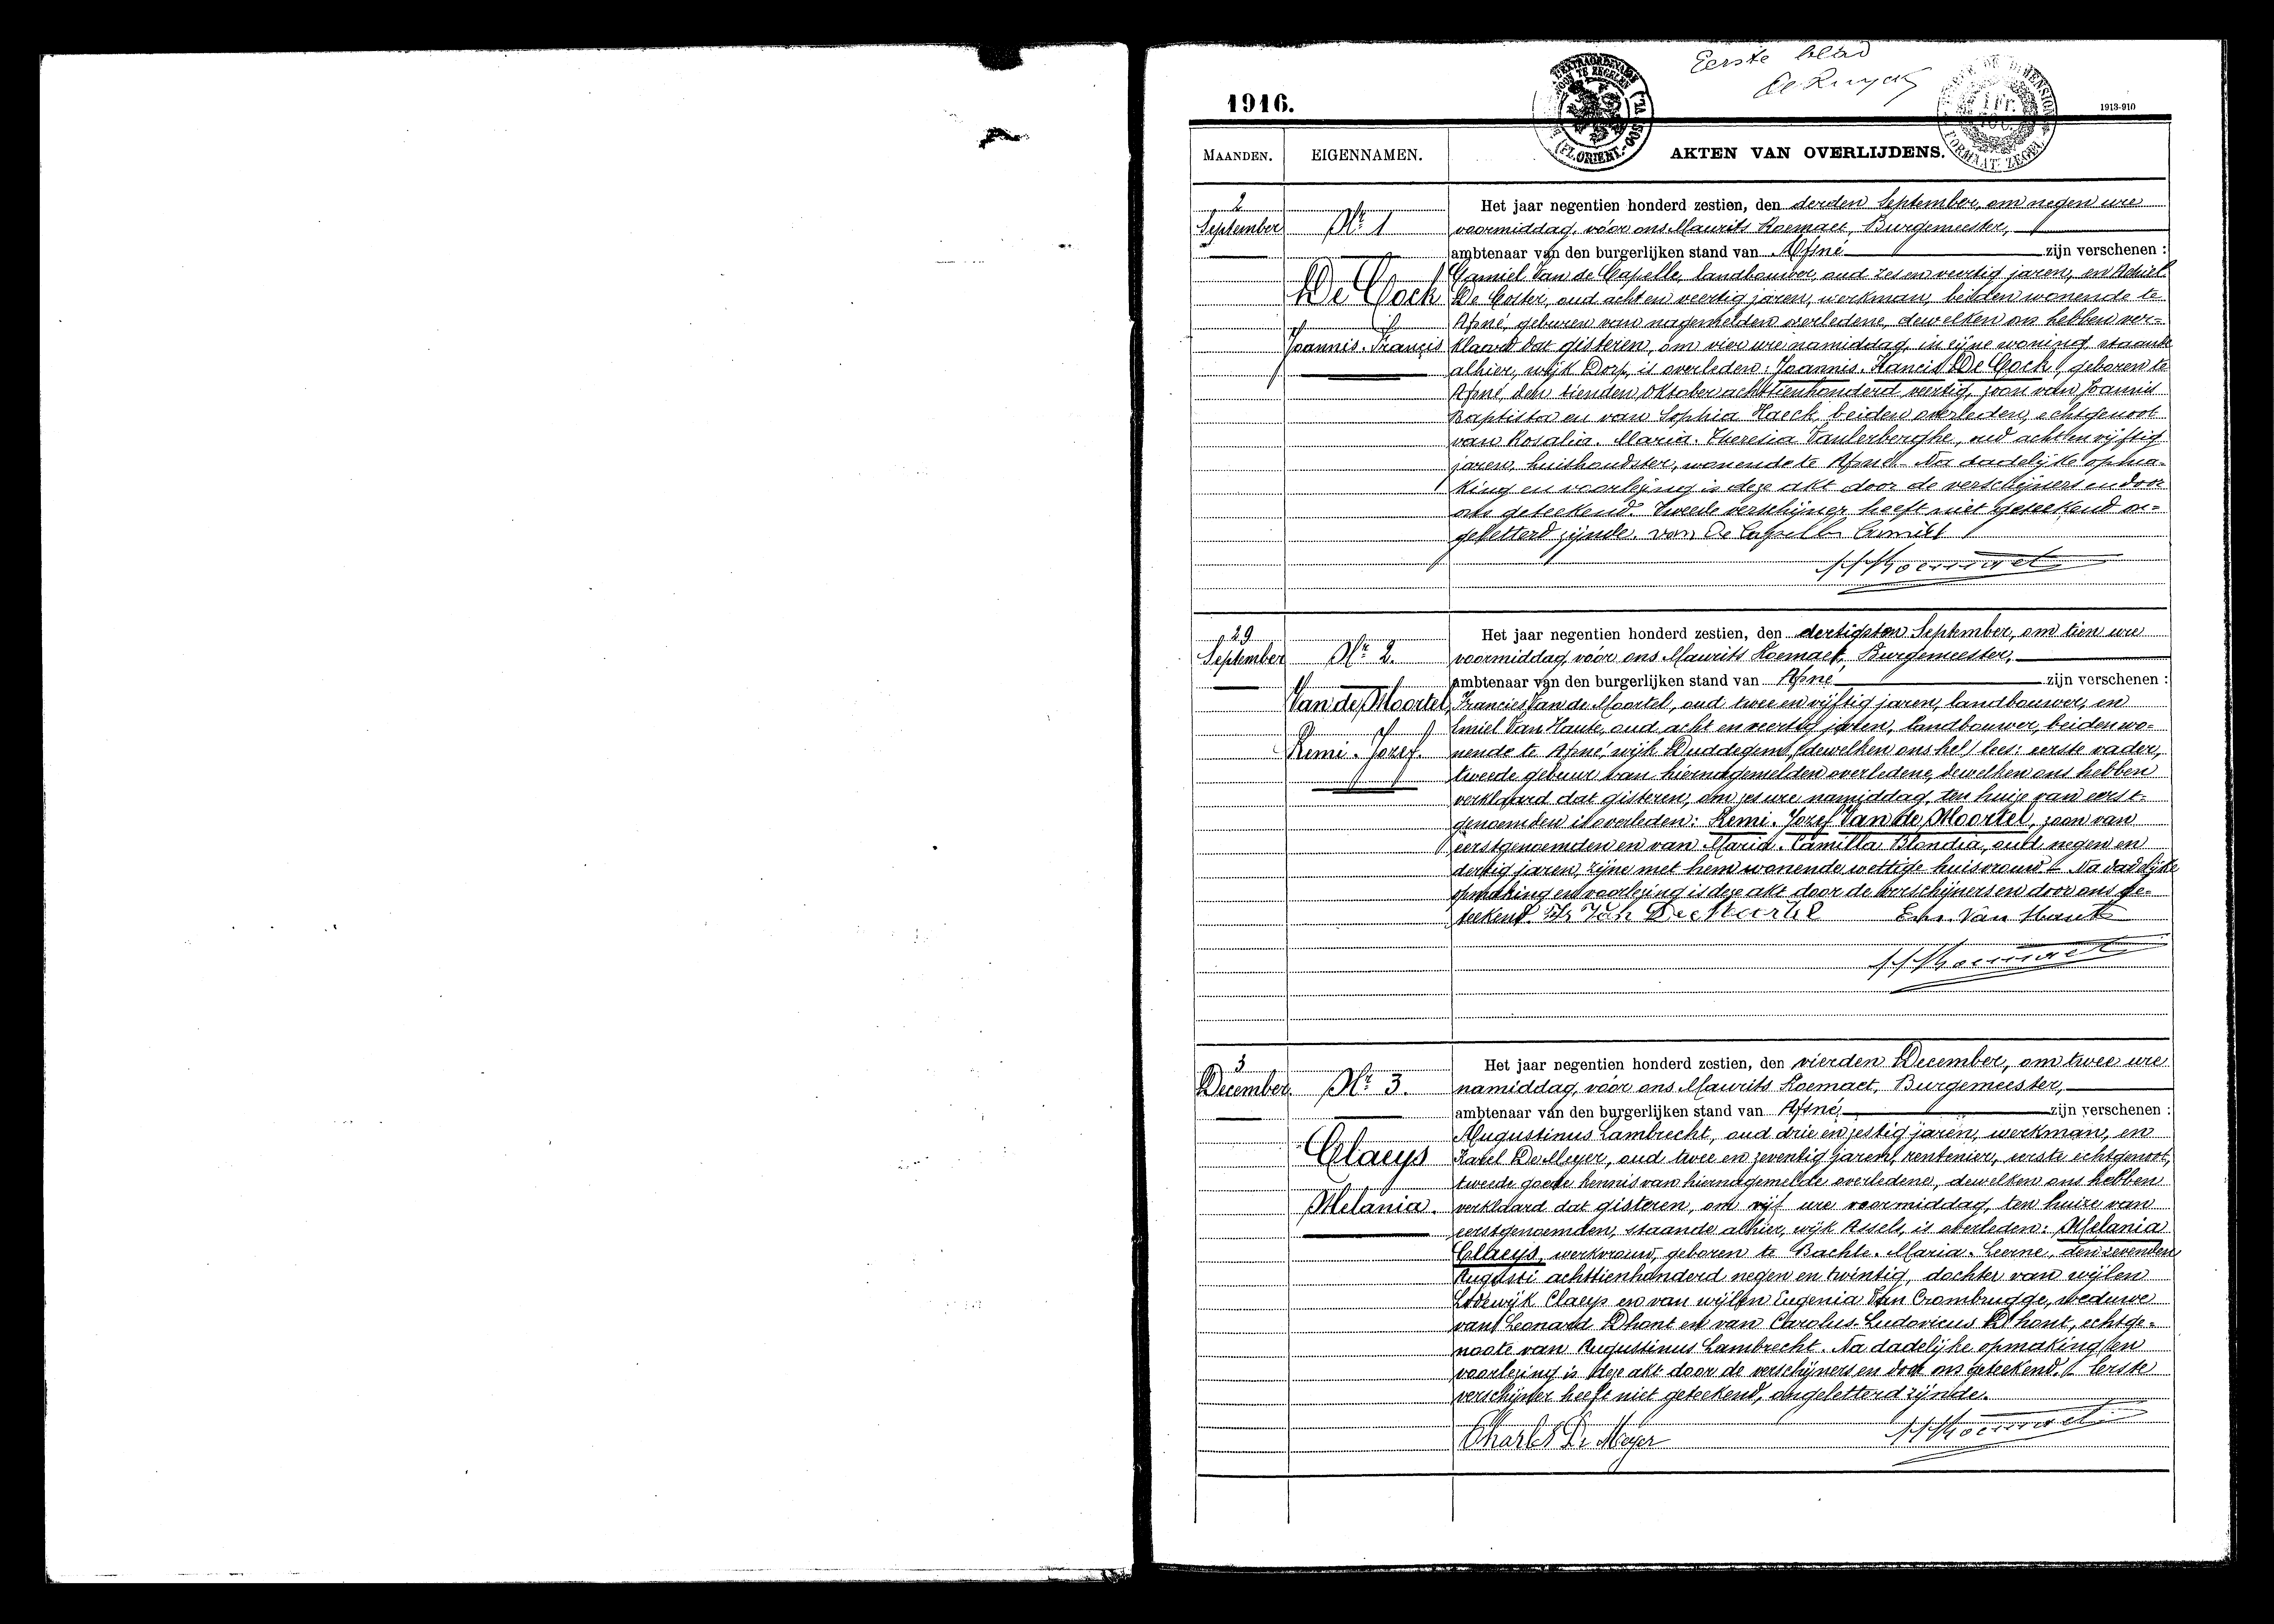 Eerste blad
De Ruyck
1916.
1913-910
MAANDEN.
EIGENNAMEN.
AKTEN VAN OVERLIJDENS.
2
September
Nr 1
De Cock
Joannis. Francis
Het jaar negentien honderd zestien, den derden September, om negen ure
voormiddag, vóor ons Maurits Roemaet, Burgemeester,
ambtenaar van den burgerlijken stand van Afsné zijn verschenen :
Camiel Van de Capelle, landbouwer, oud zes en veertig jaren, en Achiel
De Coster, oud acht en veertig jaren, werkman, beiden wonende te
Afsné, geburen van nagemelden overledene, dewelken ons hebben ver=
klaard dat gisteren, om vier ure namiddag, in zijne woning staande
alhier, wijk Dorp, is overleden: Joannis. Francis De Cock, geboren te
Afsné, den tienden Oktober achttienhonderd veertig, zoon van Joannis
Baptista en van Sophia Haeck, beiden overleden, echtgenoot
van Rosalia. Maria. Theresia Vanlerberghe, oud acht en vijftig
jaren, huishoudster, wonende te Afsné. Na dadelijke opma=
king en voorlezing is deze akt door de verschijners en door
ons geteekend. Tweede verschijner heeft niet geteekend on=
geletterd zijnde. van De Capelle Camiel
M Roemaet
29
September
Nr 2.
Van de Moortel
Remi. Jozef.
Het jaar negentien honderd zestien, den dertigsten September, om tien ure
voormiddag, vóor ons Maurits Roemaet, Burgemeester,
ambtenaar van den burgerlijken stand van Afsné zijn verschenen :
Francies Van de Moortel, oud twee en vijftig jaren, landbouwer, en
Emiel Van Haute, oud acht en veertig jaren, landbouwer, beiden wo=
nende te Afsné, wijk Duddegem, (dewelken ons heb) lees: eerste vader,
tweede gebuur van hiernagemelden overledene, dewelken ons hebben
verklaard dat gisteren, om zes ure namiddag, ten huize van eerst=
genoemden is overleden: Remi. Jozef Van de Moortel, zoon van
eerstgenoemden en van Maria. Camilla Blondia, oud negen en
dertig jaren, zijne met hem wonende wettige huisvrouw. Na dadelijke
opmaking en voorlezing is deze akt door de verschijners en door ons ge=
teekend. Fr Van De Moortel Em. Van Haute
M Roemaet
3
December.
Nr 3.
Claeys
Melania.
Het jaar negentien honderd zestien, den vierden December, om twee ure
namiddag, vóor ons Maurits Roemaet, Burgemeester,
ambtenaar van den burgerlijken stand van Afsné zijn verschenen :
Augustinus Lambrecht, oud drie en zestig jaren, werkman, en
Karel De Meyer, oud twee en zeventig jaren, rentenier, eerste echtgenoot,
tweede goede kennis van hiernagemelde overledene, dewelken ons hebben
verklaard dat gisteren, om vijf ure voormiddag, ten huize van
eerstgenoemden, staande alhier, wijk Assels, is overleden: Melania
Claeys, werkvrouw, geboren te Bachte. Maria. Leerne, den zevenden
Augusti achttienhonderd negen en twintig, dochter van wijlen
Lodewijk Claeys en van wijlen Eugenia Van Crombrugge, weduwe
van Leonard Dhont en van Carolus. Ludovicus D'hont, echtge=
noote van Augustinus Lambrecht. Na dadelijke opmaking en
voorlezing is deze akt door de verschijners en door ons geteekend. Eerste
verschijner heeft niet geteekend, ongeletterd zijnde.
Charles De Meyer M Roemaet